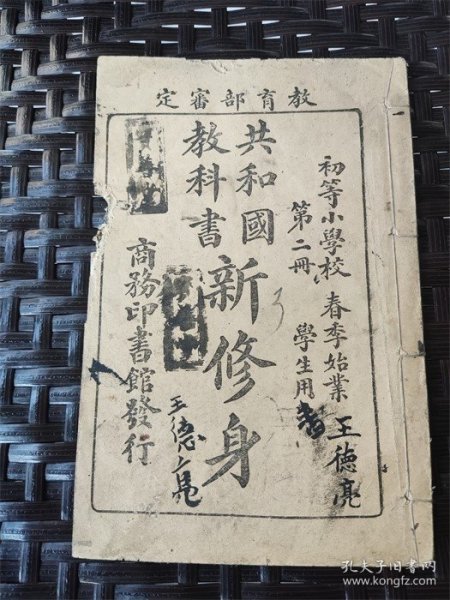 教育部審定
初等小學校 春季始業
第二冊 學生用
共和國
教科書
新修身
商務印書館發行
王德亮
王德亮
3
孔夫子旧书网
www.kongfz.com